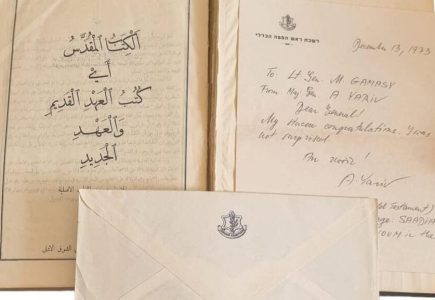 الكِتَابُ المُقَدَّسُ
أَيْ
كُتُبُ العَهْدِ القَدِيمِ
وَالْعَهْدِ
الْجَدِيدِ
לשכת ראש המטה הכללי
December 13, 1973
To: Lt Gen M. GAMASY
From Maj Gen A YARIV
Dear General!
My sincere congratulations. I was
not surprised.
Au revoir!
A. Yariv
Testament)
SAADIA
in the